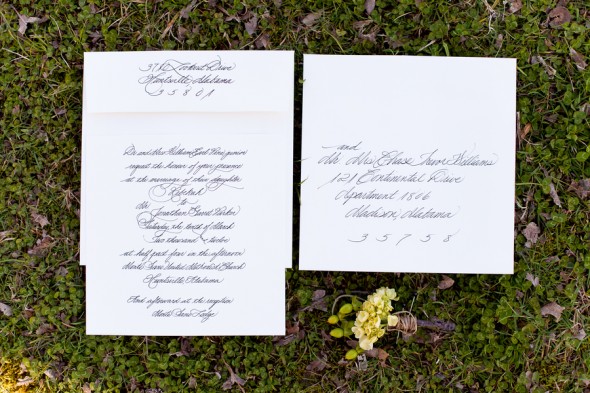 Drive
Huntsville, Alabama
35801
Dr. and Mrs. William Earl
request the honor of your presence
at the marriage of their daughter
Rebekah
to
Mr. Jonathan
Saturday, the tenth of March
Two thousand twelve
at half past four in the afternoon
United Methodist Church
Huntsville, Alabama
And afterward at the reception
Lodge
and
Mr. Mrs. Chase Williams
121 Continental Drive
Apartment 1806
Madison, Alabama
35758